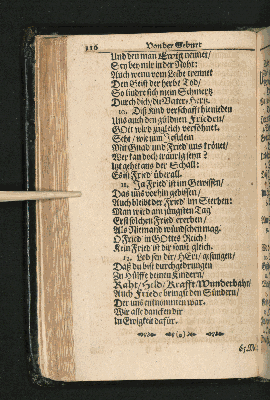 116 Von der Geburt
Und den man Ewig nennet/
Sey bey mir in der Noht:
Auch wenn vom Leibe trennet
Den Geist der herbe Tod/
So lindre sich mein Schmertz
Durch dich/ du Vater Hertz.
10. Diß Kind verschafft hienieden
Uns auch den güldnen Frieden/
GOtt wird zugleich versöhnet.
Seht/ wie zum
Mit Gnad und Fried uns krönet/
Wer kan doch traurig seyn?
Itzt gehet aus der Schall:
Es ist Fried überall.
11. Ja Fried ist im Gewissen/
Das uns vorhin gebissen/
Auch bleibet der Fried im Sterben:
Man wird am jüngsten Tag
Erst solchen Fried ererben/
Als Niemand wünschen mag.
O Fried in GOttes Reich!
Kein Fried ist dir sonst gleich.
12. Lob sey dir/ HErr/ gesungen/
Daß du bist durchgedrungen
Zu Hülffe deinen Kindern/
Raht/ Held/ Krafft/ Wunderbahr/
Auch Friede bringst den Sündern/
Der uns entnommen war.
Wir alle dancken dir
In Ewigkeit dafür.